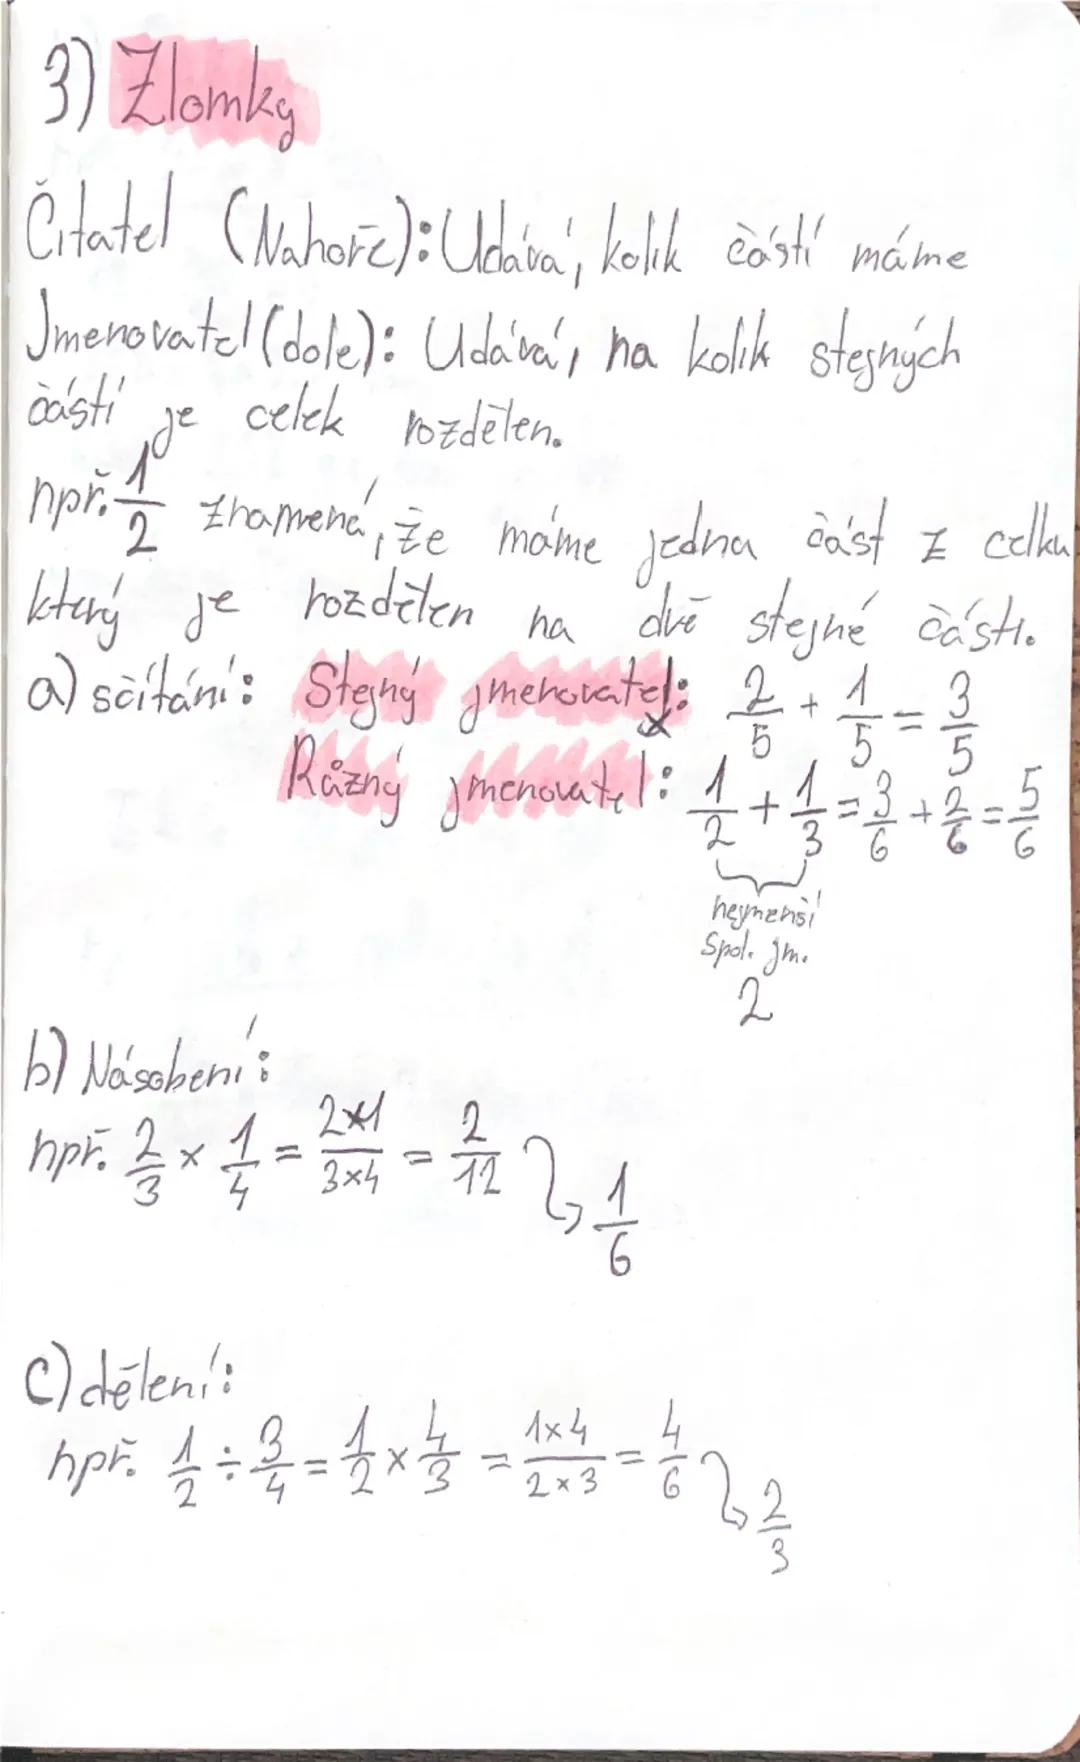 3) Zlomky
Čitatel (Nahoře): Udává, kolik částí máme
Jmenovatel (dole): Udává, na kolik stejných
částí je celek rozdělen.
npř. 1/2 znamená, že máme jedna část z celku
který je rozdělen na dvě stejné části.
a) sčítání: Stejný jmenovatel: 2/5 + 1/5 = 3/5
Různý jmenovatel: 1/2 + 1/3 = 3/6 + 2/6 = 5/6
nejmenší
spol. jm.
2
b) Násobení:
npř. 2/3 × 1/4 = 2×1/3×4 = 2/12 ↳ 1/6
c) dělení:
npř. 1/2 ÷ 3/4 = 1/2 × 4/3 = 1×4/2×3 = 4/6 ↳ 2/3